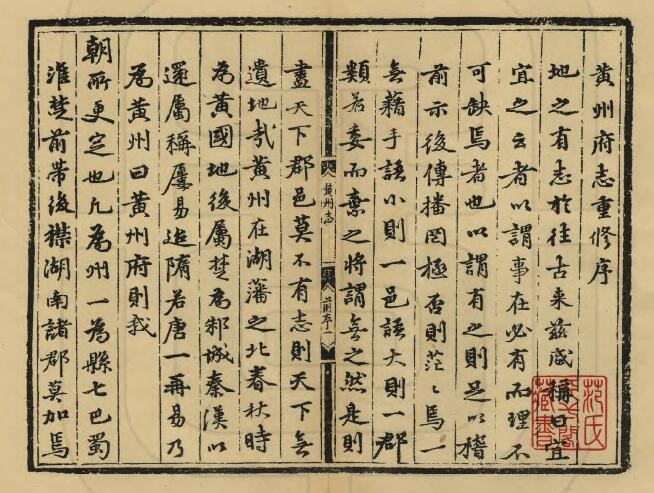 黄州府志重修序
地之有志於往古来兹咸稱曰宜
宜之云者以謂事在必有而理不
可缺焉者也以謂有之則足以稽
前示後傳播罔極否則茫〻焉一
無藉手語小則一邑語大則一郡
類若委而棄之将謂無之然是則
黄州志
前序一
盡天下郡邑莫不有志則天下無
遺地哉黄州在湖藩之北春秋時
為黄國地後屬楚為邾城秦漢以
還屬稱屢易迨隋若唐一再易乃
為黄州曰黄州府則我
朝所更定也凡為州一為縣七巴蜀
淮楚前帶後襟湖南諸郡莫加焉
范氏天一閣藏書